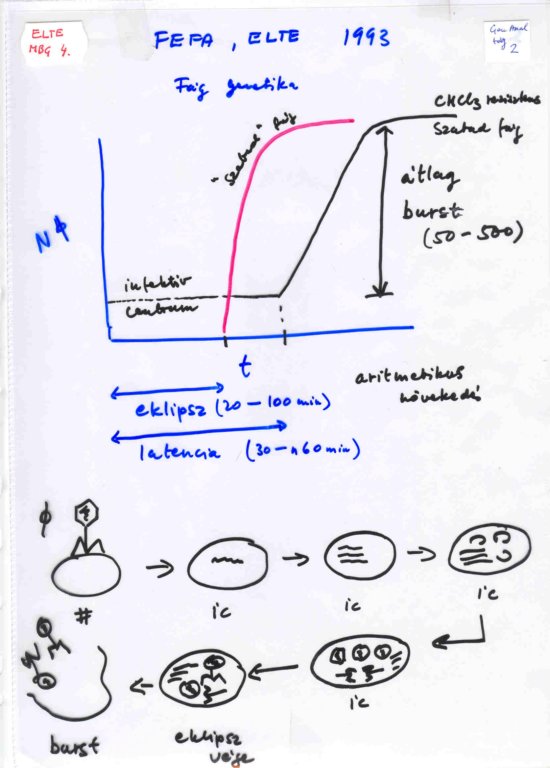 ELTE
MBG 4.
FEFA, ELTE 1993
2
Fág genetika
CHCl3 rezisztens
szabad fág
"szabad" fág
átlag
burst
(50-500)
NΦ
infektív
centrum
t
aritmetikus
növekedés
eklipsz (20-100 min)
latencia (30-n60min)
ϕ
#
ic
ic
ic
ic
burst
eklipsz
vége